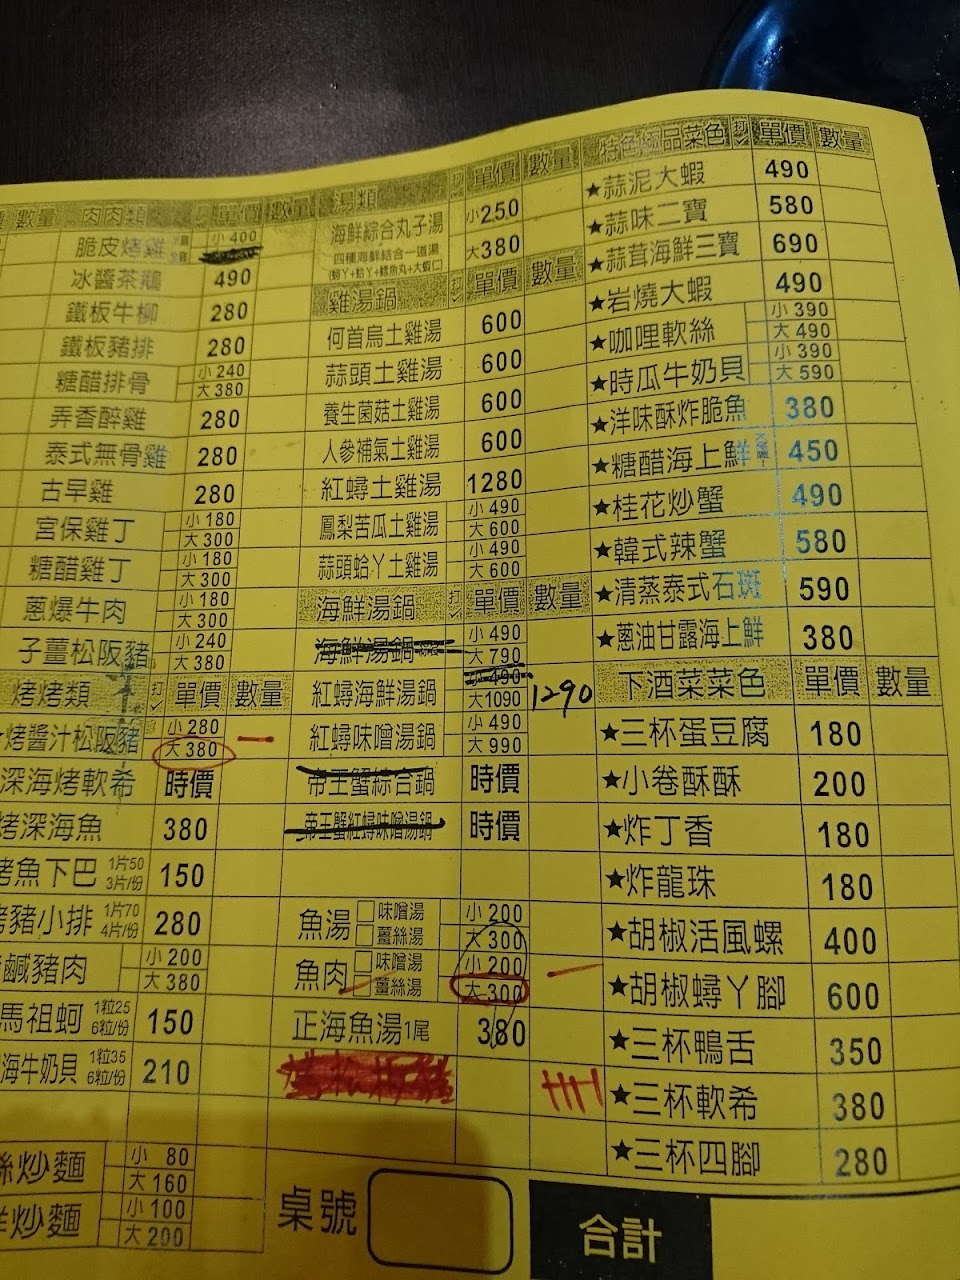 數量 肉肉類 打✓ 單價 數量
脆皮烤雞 小400
冰醬茶鵝 490
鐵板牛柳 280
鐵板豬排 280
糖醋排骨 小240 大380
弄香醉雞 280
泰式無骨雞 280
古早雞 280
宮保雞丁 小180 大300
糖醋雞丁 小180 大300
蔥爆牛肉 小180 大300
子薑松阪豬 小240 大380
烤烤類 打✓ 單價 數量
烤醬汁松阪豬 小280 大380 一
深海烤軟希 時價
烤深海魚 380
烤魚下巴 1片50 3片/份 150
烤豬小排 1片70 4片/份 280
鹹豬肉 小200 大380
馬祖蚵 1粒25 6粒/份 150
海牛奶貝 1粒35 6粒/份 210
絲炒麵 小 80 大160
炒麵 小100 大200
湯類 打✓ 單價 數量
海鮮綜合丸子湯 小250 大380
四種海鮮結合一道湯
雞湯鍋 打✓ 單價 數量
何首烏土雞湯 600
蒜頭土雞湯 600
養生菌菇土雞湯 600
人參補氣土雞湯 600
紅蟳土雞湯 1280
鳳梨苦瓜土雞湯 小490 大600
蒜頭蛤ㄚ土雞湯 小490 大600
海鮮湯鍋 打✓ 單價 數量
海鮮湯鍋 小490 大790
紅蟳海鮮湯鍋 小490 大1090 1290
紅蟳味噌湯鍋 小490 大990
帝王蟹綜合鍋 時價
帝王蟹紅蟳味噌湯鍋 時價
魚湯 □味噌湯 □薑絲湯 小200 大300
魚肉 □味噌湯 □薑絲湯 小200 大300 一
正海魚湯1尾 380
桌號
特色極品菜色 打✓ 單價 數量
★蒜泥大蝦 490
★蒜味二寶 580
★蒜茸海鮮三寶 690
★岩燒大蝦 490
★咖哩軟絲 小390 大490
★時瓜牛奶貝 小390 大590
★洋味酥炸脆魚 380
★糖醋海上鮮 450
★桂花炒蟹 490
★韓式辣蟹 580
★清蒸泰式石斑 590
★蔥油甘露海上鮮 380
下酒菜菜色 單價 數量
★三杯蛋豆腐 180
★小卷酥酥 200
★炸丁香 180
★炸龍珠 180
★胡椒活風螺 400
★胡椒蟳ㄚ腳 600
★三杯鴨舌 350
★三杯軟希 380
★三杯四腳 280
合計